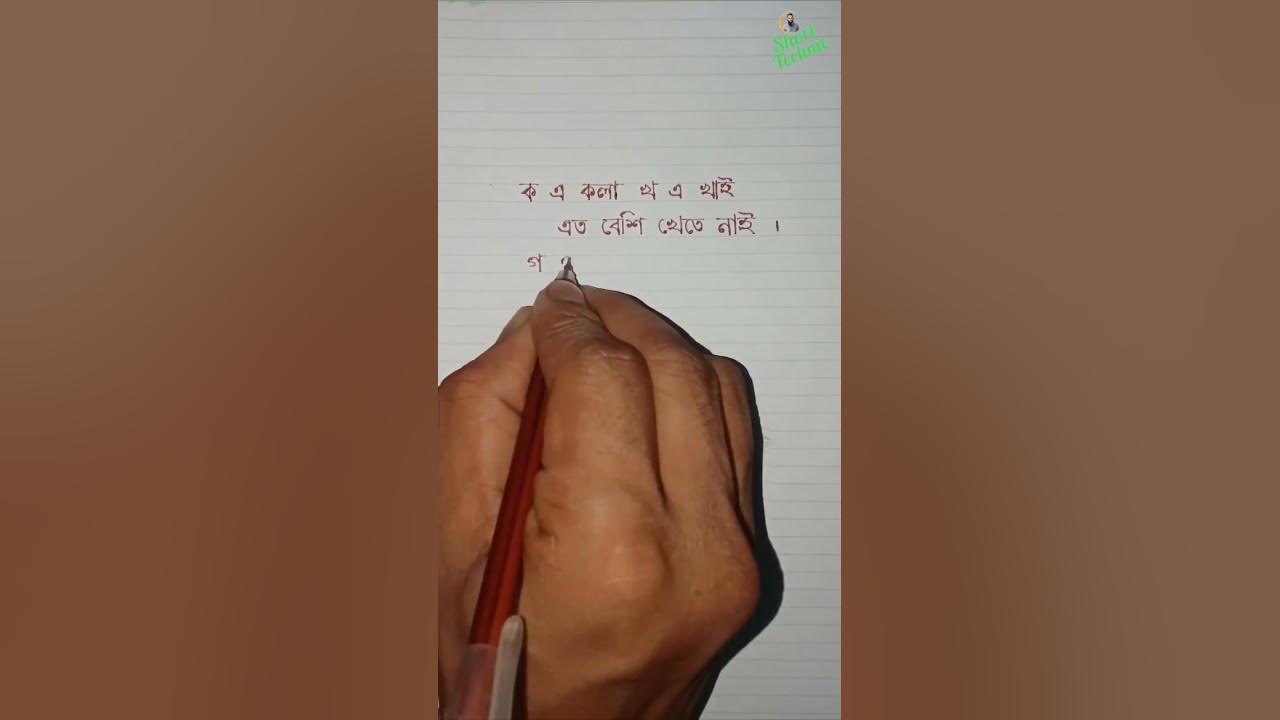 Short
Technic
ক এ কলা খ এ খাই
এত বেশি খেতে নাই ।
গ